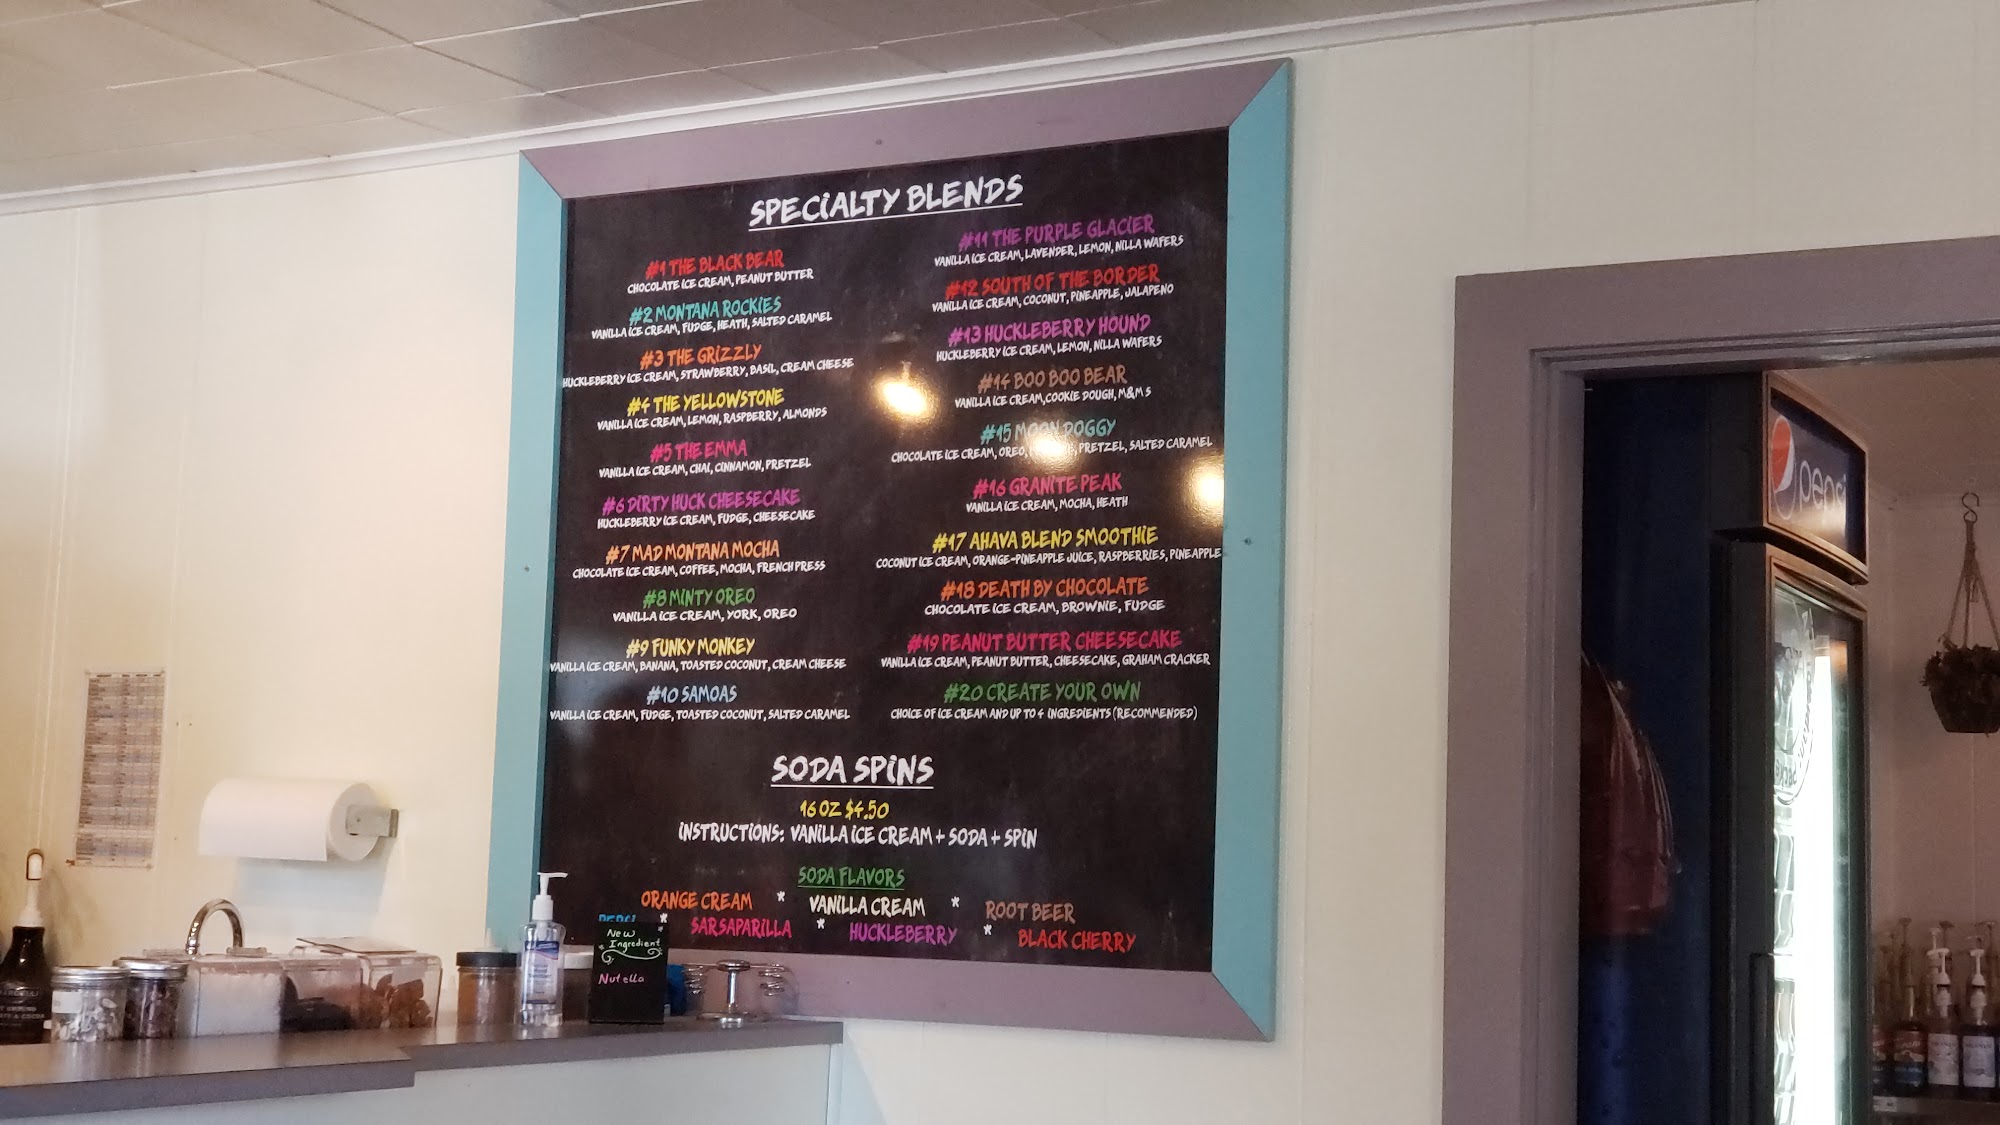 SPECIALTY BLENDS
#1 THE BLACK BEAR
CHOCOLATE ICE CREAM, PEANUT BUTTER
#2 MONTANA ROCKIES
VANILLA ICE CREAM, FUDGE, HEATH, SALTED CARAMEL
#3 THE GRIZZLY
HUCKLEBERRY ICE CREAM, STRAWBERRY, BASIL, CREAM CHEESE
#4 THE YELLOWSTONE
VANILLA ICE CREAM, LEMON, RASPBERRY, ALMONDS
#5 THE EMMA
VANILLA ICE CREAM, CHAI, CINNAMON, PRETZEL
#6 DIRTY HUCK CHEESECAKE
HUCKLEBERRY ICE CREAM, FUDGE, CHEESECAKE
#7 MAD MONTANA MOCHA
CHOCOLATE ICE CREAM, COFFEE, MOCHA, FRENCH PRESS
#8 MINTY OREO
VANILLA ICE CREAM, YORK, OREO
#9 FUNKY MONKEY
VANILLA ICE CREAM, BANANA, TOASTED COCONUT, CREAM CHEESE
#10 SAMOAS
VANILLA ICE CREAM, FUDGE, TOASTED COCONUT, SALTED CARAMEL
#11 THE PURPLE GLACIER
VANILLA ICE CREAM, LAVENDER, LEMON, NILLA WAFERS
#12 SOUTH OF THE BORDER
VANILLA ICE CREAM, COCONUT, PINEAPPLE, JALAPENO
#13 HUCKLEBERRY HOUND
HUCKLEBERRY ICE CREAM, LEMON, NILLA WAFERS
#14 BOO BOO BEAR
VANILLA ICE CREAM,COOKIE DOUGH, M&M S
#15 MOON DOGGY
CHOCOLATE ICE CREAM, OREO, PRETZEL, SALTED CARAMEL
#16 GRANITE PEAK
VANILLA ICE CREAM, MOCHA, HEATH
#17 AHAVA BLEND SMOOTHIE
COCONUT ICE CREAM, ORANGE-PINEAPPLE JUICE, RASPBERRIES, PINEAPPLE
#18 DEATH BY CHOCOLATE
CHOCOLATE ICE CREAM, BROWNIE, FUDGE
#19 PEANUT BUTTER CHEESECAKE
VANILLA ICE CREAM, PEANUT BUTTER, CHEESECAKE, GRAHAM CRACKER
#20 CREATE YOUR OWN
CHOICE OF ICE CREAM AND UP TO 4 INGREDIENTS (RECOMMENDED)
SODA SPINS
16 OZ $4.50
INSTRUCTIONS: VANILLA ICE CREAM + SODA + SPIN
SODA FLAVORS
ORANGE CREAM * VANILLA CREAM * ROOT BEER
PEPSI * SARSAPARILLA * HUCKLEBERRY * BLACK CHERRY
New
Ingredient
Nutella
pepsi